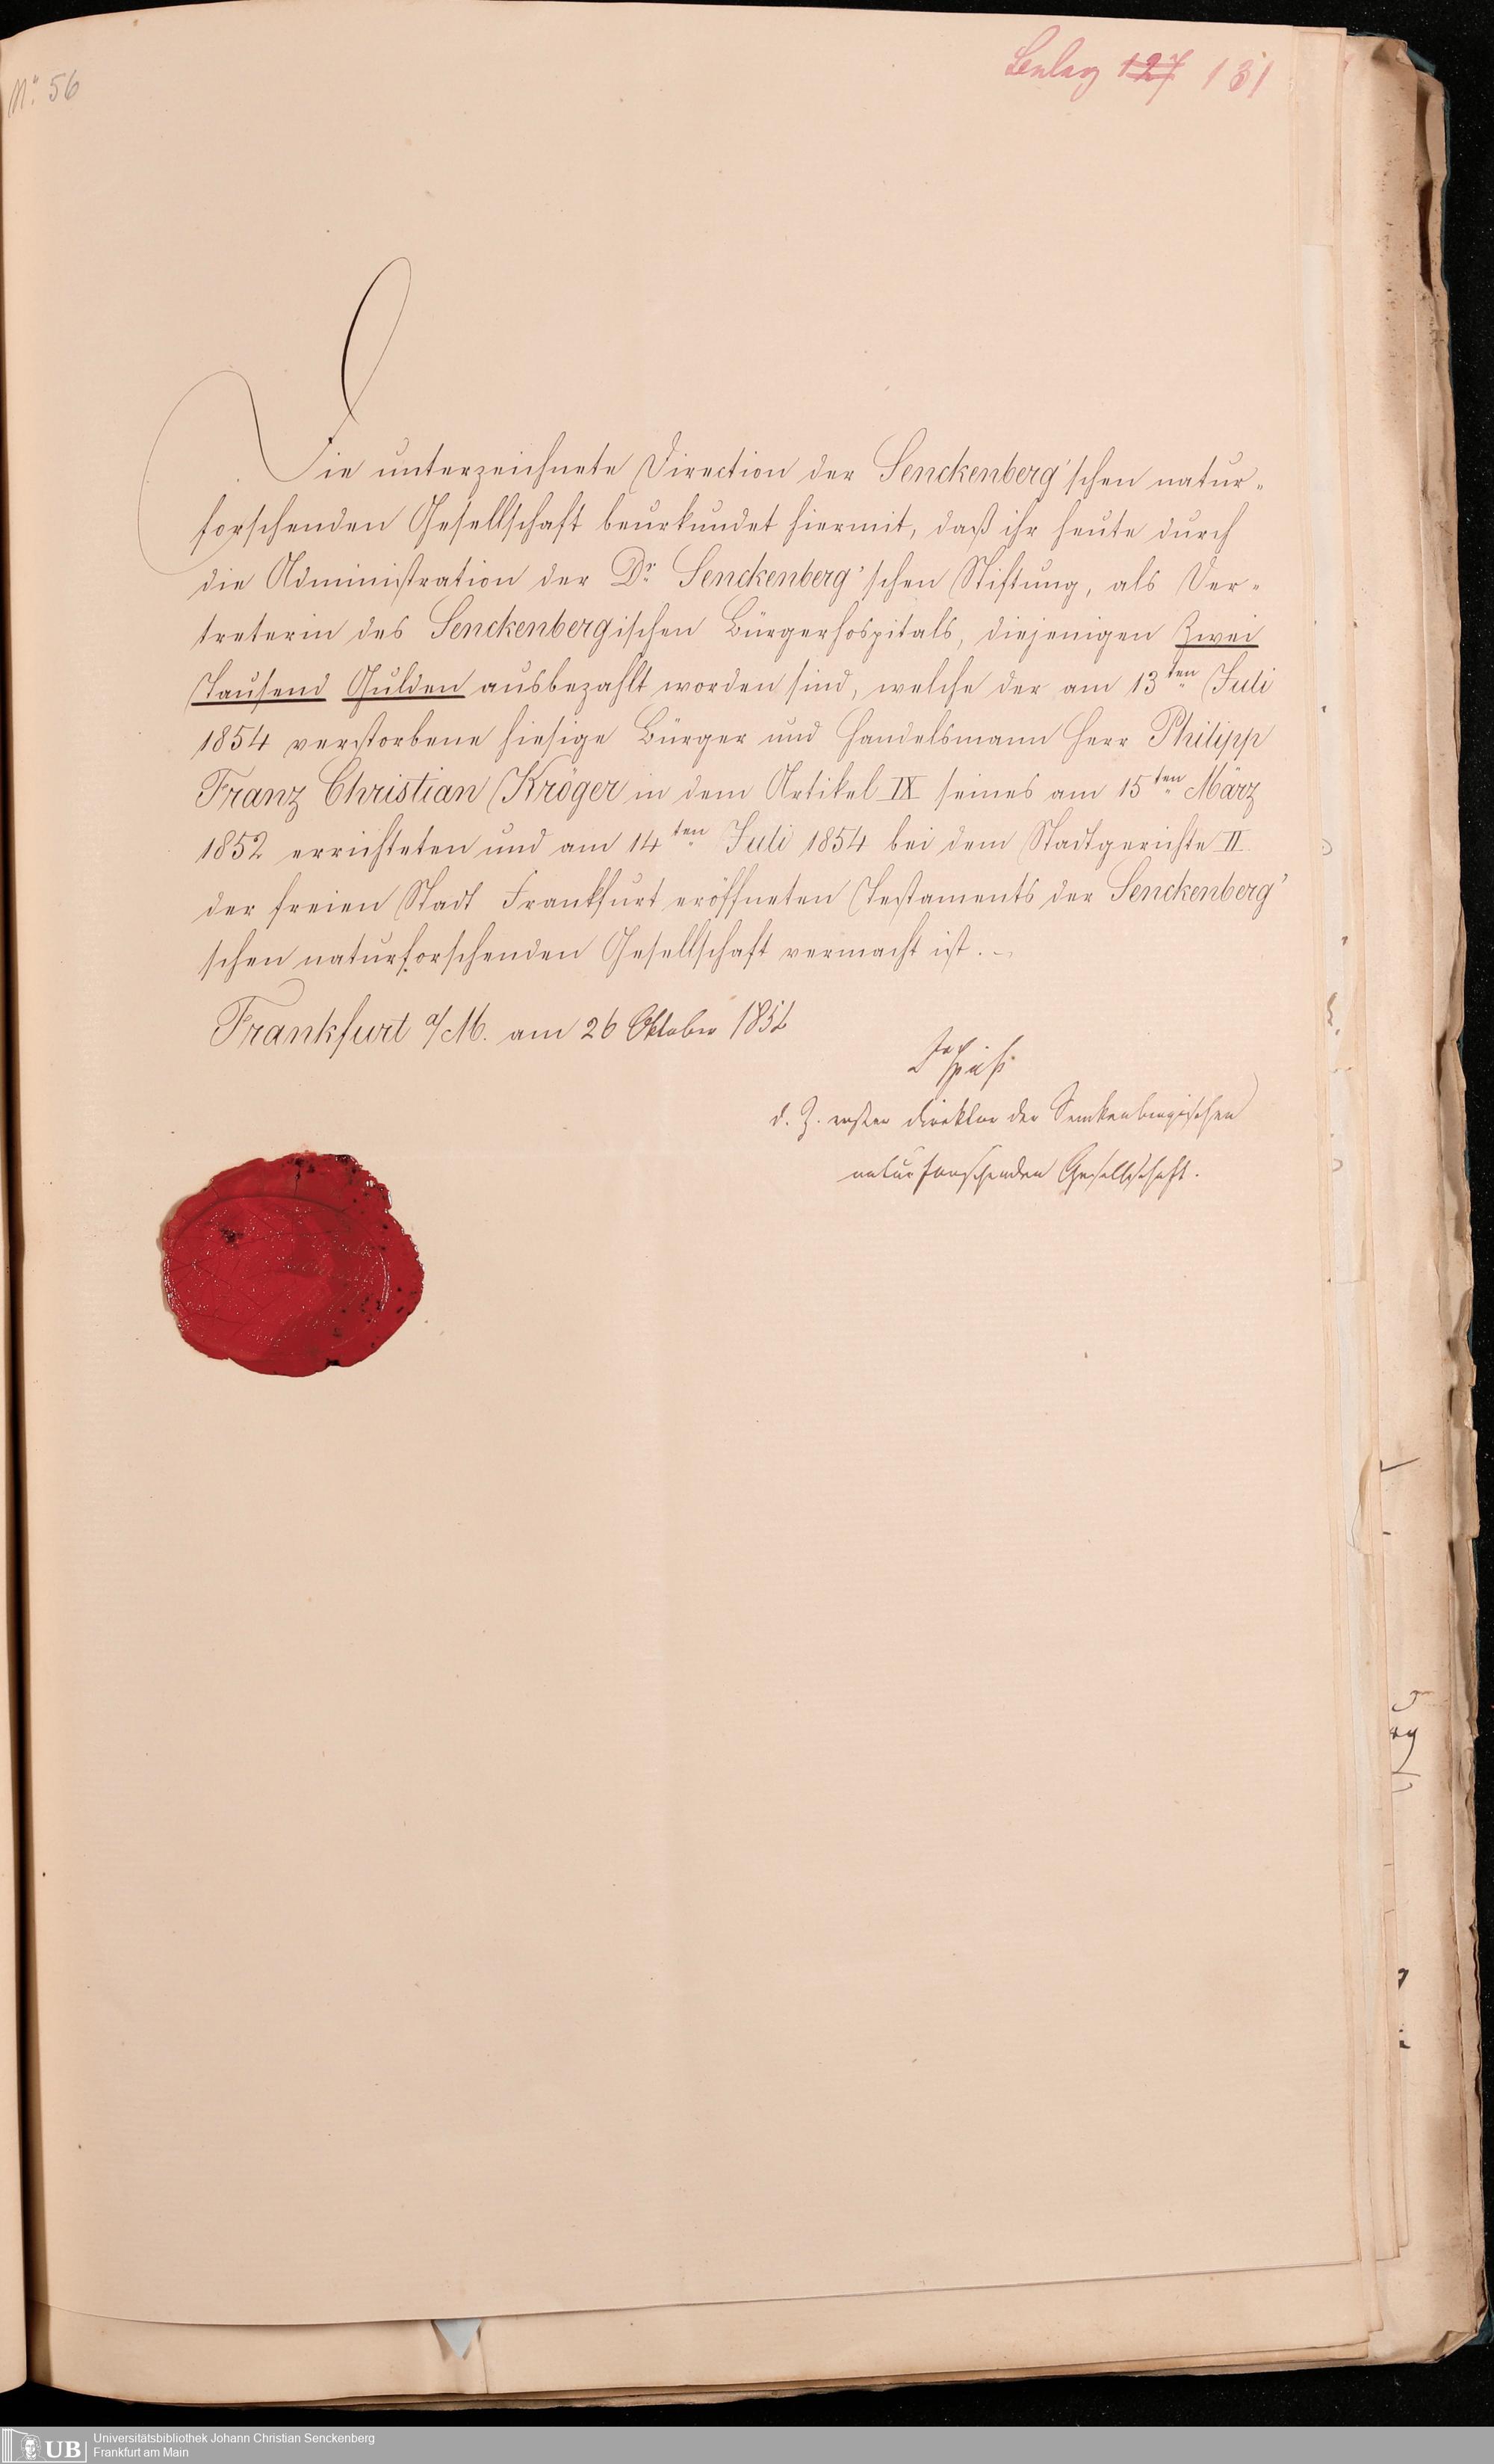 No. 56
Beilag 127 131
Die unterzeichnete Direction der Senckenberg'schen natur-
forschenden Gesellschaft beurkundet hiermit, daß ihr heute durch
die Administration der Dr. Senckenberg'schen Stiftung, als Ver-
treterin des Senckenbergischen Bürgerhospitals, diejenigen Zwei
Tausend Gulden ausbezahlt worden sind, welche der am 13ten Juli
1854 verstorbene hiesige Bürger und Handelsmann Herr Philipp
Franz Christian Kröger in dem Artikel IX seines am 15ten März
1852 errichteten und am 14ten Juli 1854 bei dem Stadtgerichte II
der freien Stadt Frankfurt eröffneten Testaments der Senckenberg'
schen naturforschenden Gesellschaft vermacht ist.
Frankfurt a/M. am 26 Oktober 1854
Dr Spieß
d. Z. erster Direktor der Senckenbergischen
naturforschenden Gesellschaft.
UB
Universitätsbibliothek Johann Christian Senckenberg
Frankfurt am Main